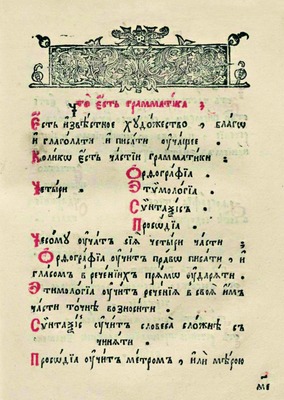 Что̀ є҆́сть грамматїка ;
Е҆́сть и҆звѣ́стное художество , благѡ
и҆ глаголати и҆ писати оу҆чащее .
Колики є҆́сть части грамматїки ;
Ѻ҆рѳографі́а .
Четы́ри . Этѷмологі́а .
Сѷнтаѯі́съ .
Просѡді́а .
Чесомꙋ оу҆чатъ сїѧ̑ четыри части ;
Ѻ҆рѳографі́а оу҆читъ правѡ писати , и҆
гласомъ въ речениихъ прѧмѡ оу҆дарѧти .
Этимологі́а оу҆читъ речениѧ в своѧ̑ и҆мъ
части точнѣ возносити .
Сѷнтаѯі́съ оу҆читъ словеса сложнѣ съ
чинѧти .
Просѡді́а оу҆читъ метромъ , и҆лѝ мѣрою
м҃є